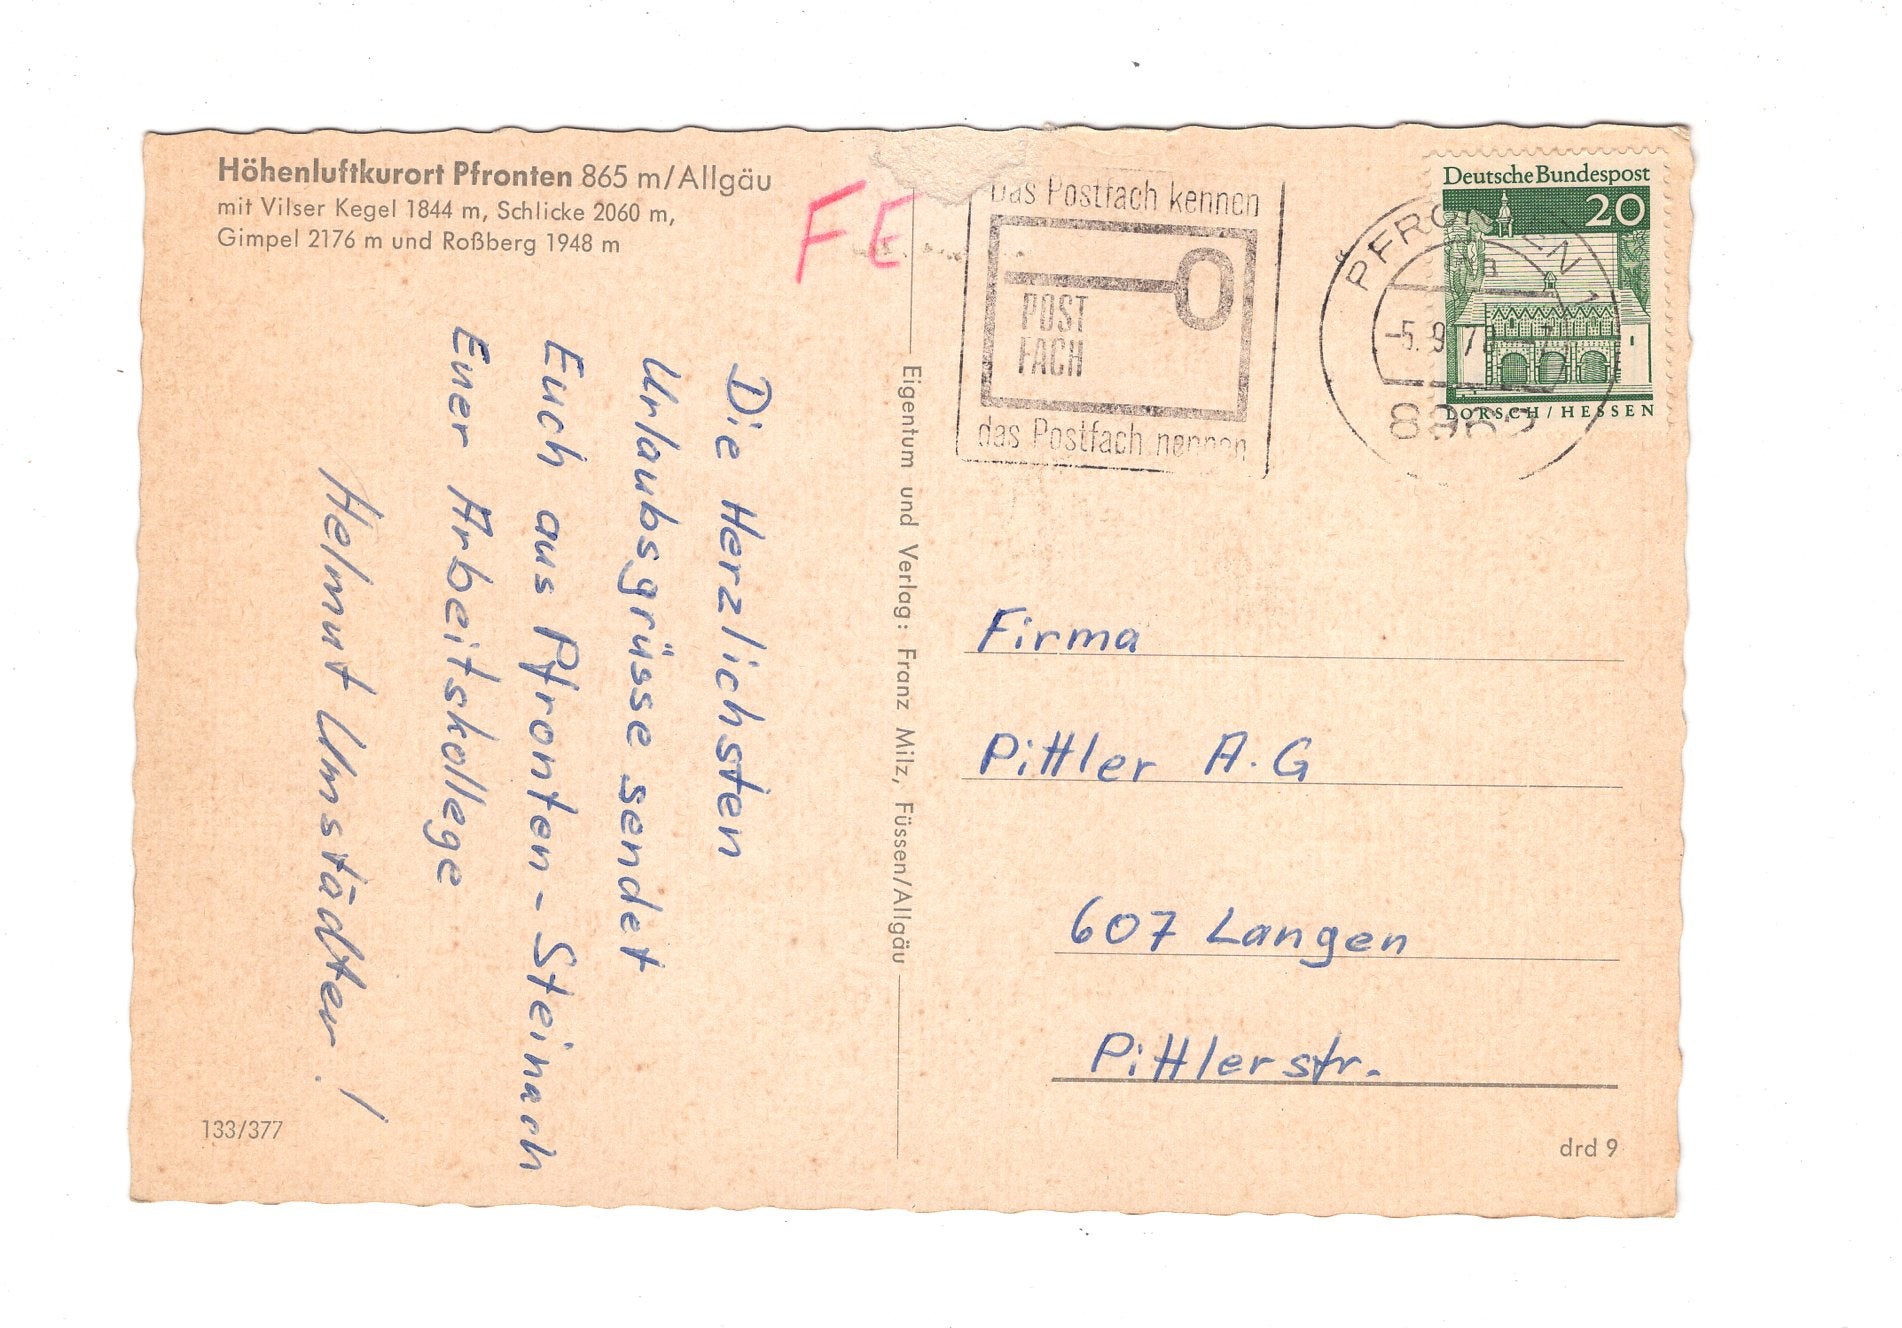 Höhenluftkurort Pfronten 865 m/Allgäu
mit Vilser Kegel 1844 m, Schlicke 2060 m,
Gimpel 2176 m und Roßberg 1948 m
FE
Die Herzlichsten
Urlaubsgrüsse sendet
Euch aus Pfronten-Steinach
Euer Arbeitskollege
Helmut Umstädter!
133/377
Eigentum und Verlag: Franz Milz, Füssen/Allgäu
Das Postfach kennen
POST
FACH
das Postfach nennen
PFRONTEN 1
a
-5.9.7
8962
Deutsche Bundespost
20
LORSCH/HESSEN
Firma
Pittler A.G
607 Langen
Pittlerstr.
drd 9